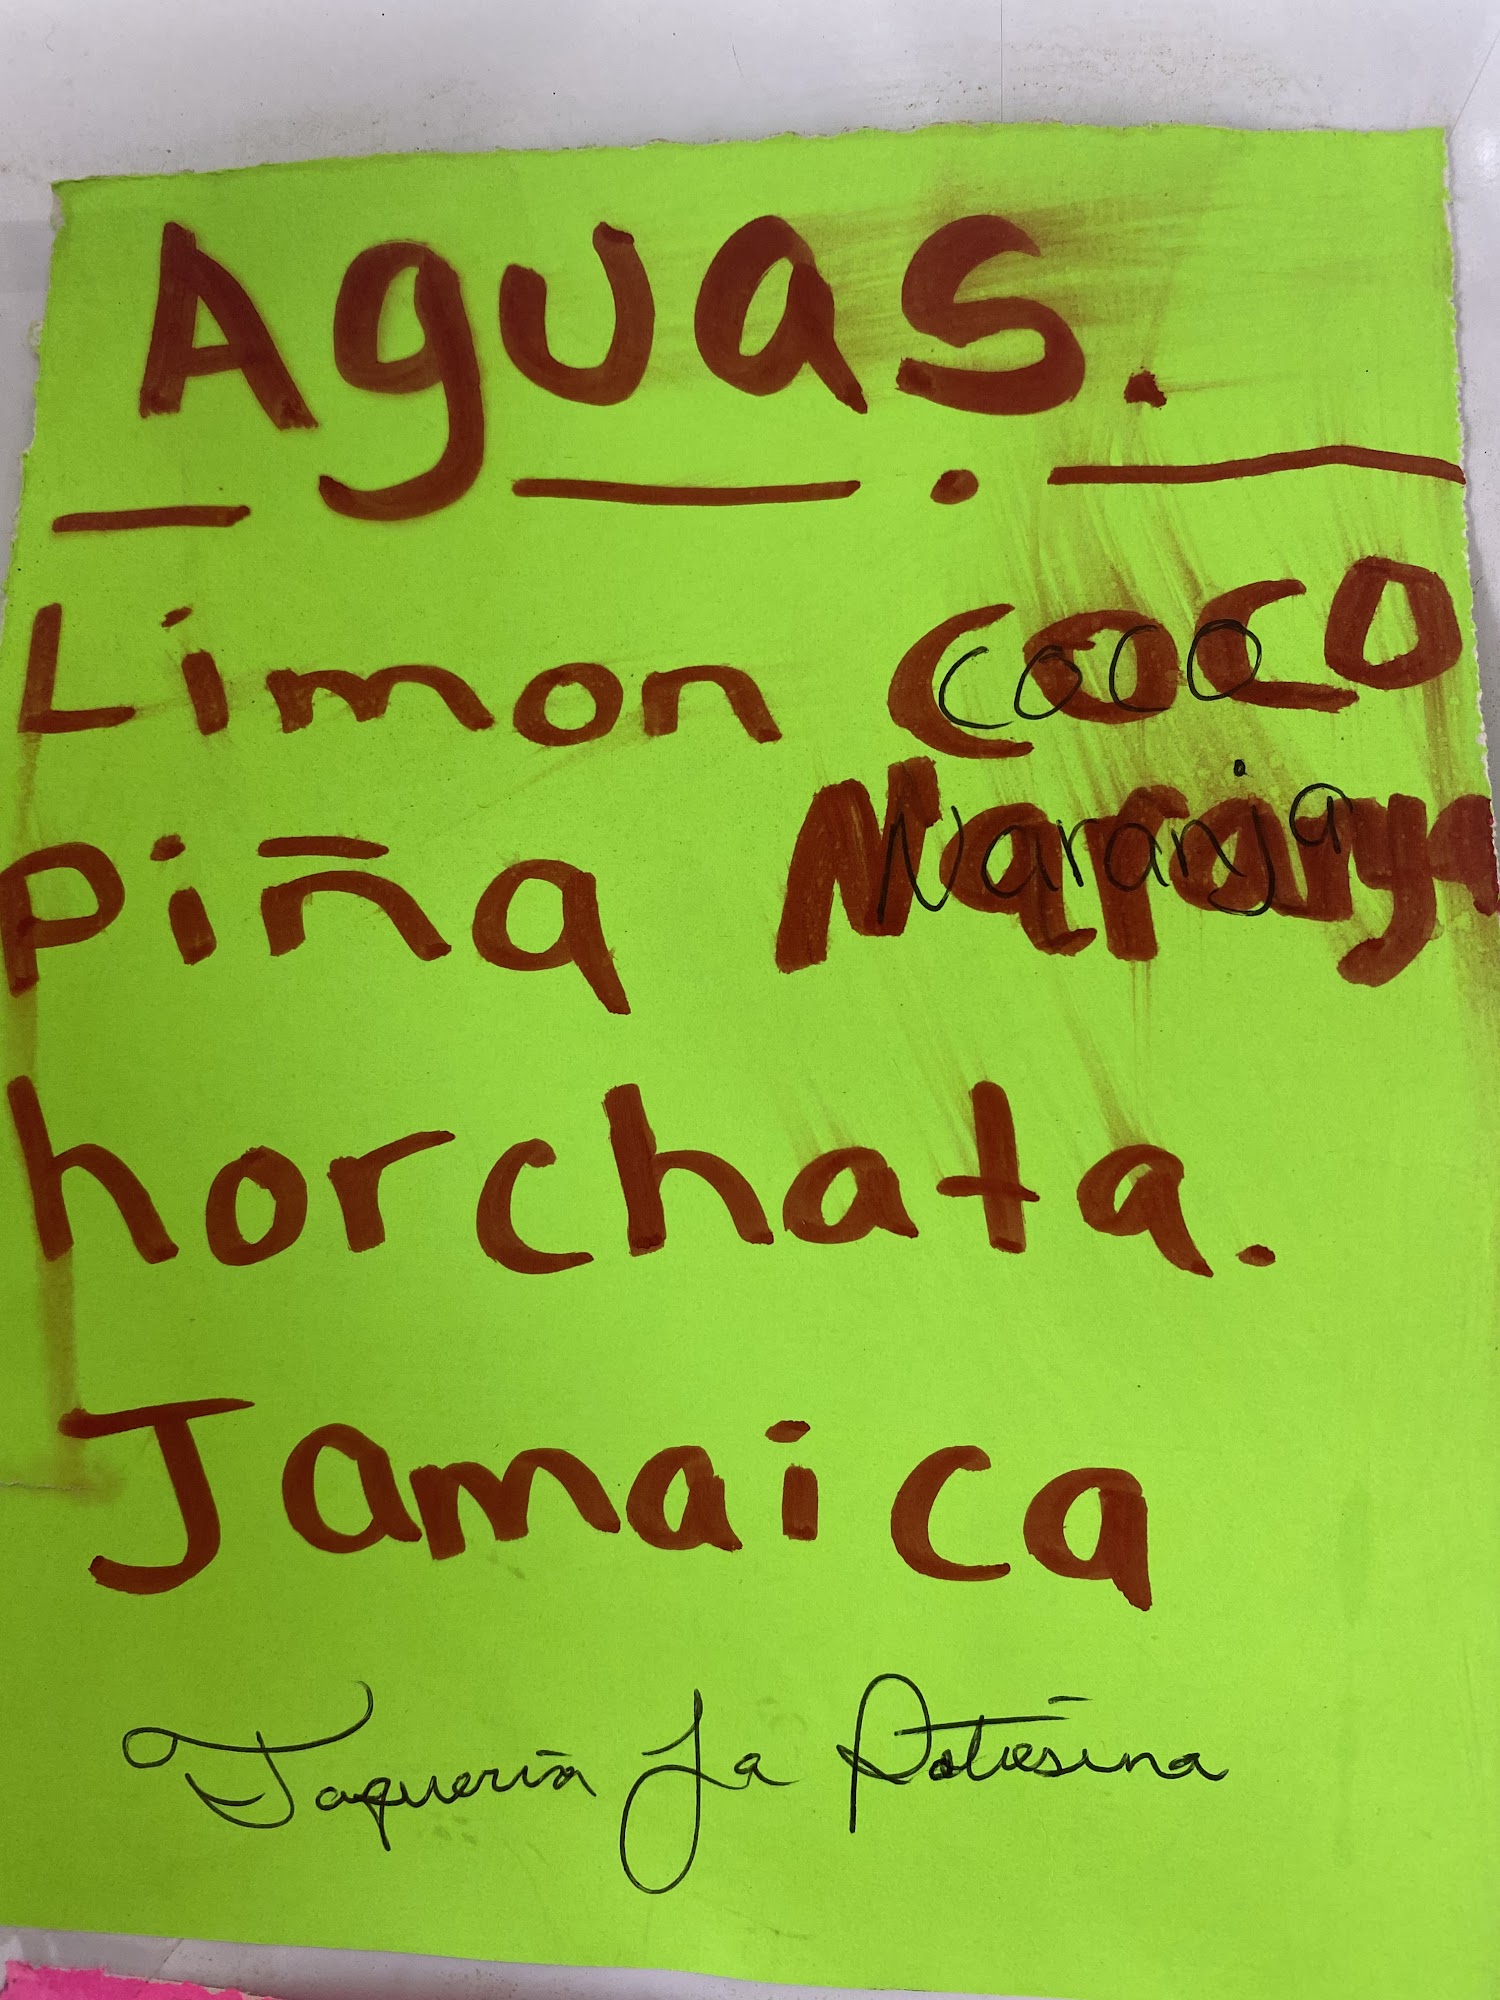 Aguas.
Limon COCO
coco
Piña Maranya
Naranja
horchata.
Jamaica
Taqueria La Potosina